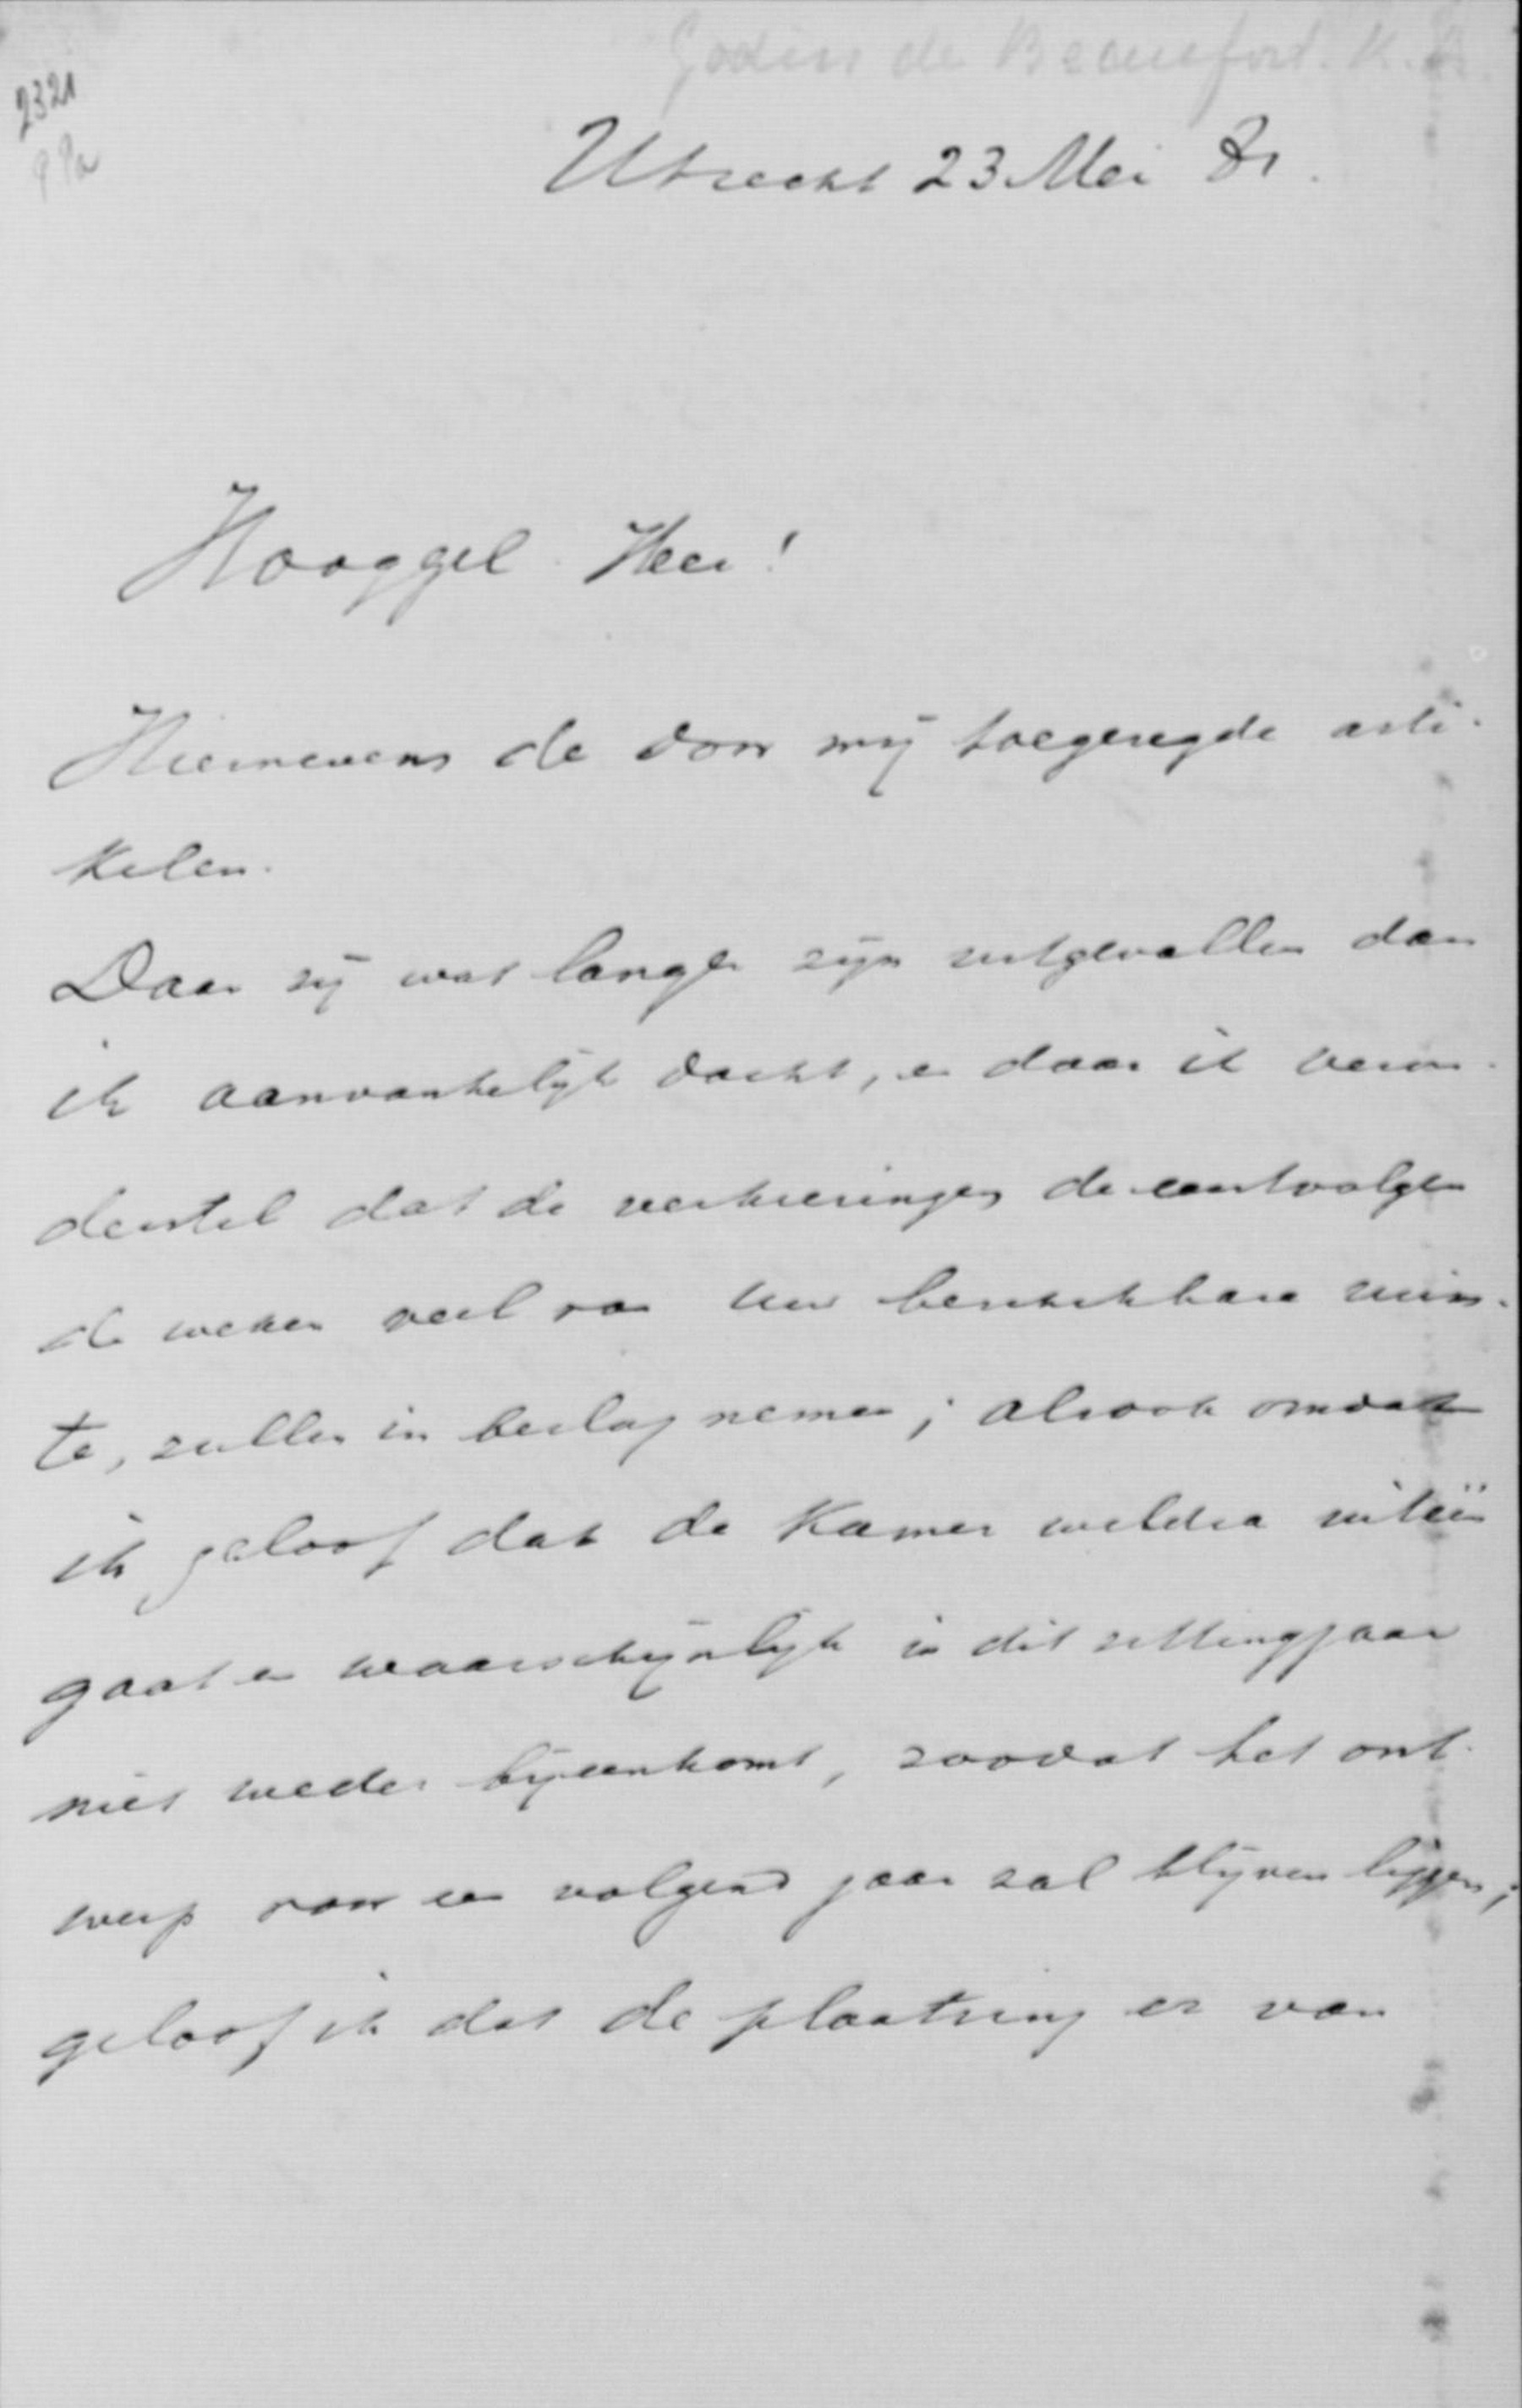 Godin de Beaufort. K. A.
2321
Utrecht 23 Mei 81.
Hooggel. Heer!
Hiernevens de door mij toegezegde arti-
kelen.
Daar zij wat langer zijn uitgevallen dan
ik aanvankelijk dacht, en daar ik veron-
derstel dat de verkiezingen de eerstvolgen
de weken veel van uw beschikbare ruim-
te, zullen in beslag nemen; alsook omdat
ik geloof dat de Kamer weldra uiteen
gaat en waarschijnlijk in dit zittingjaar
niet weder bijeenkomt, zoodat het ont-
werp voor een volgend jaar zal blijven liggen;
geloof ik dat de plaatsing er van